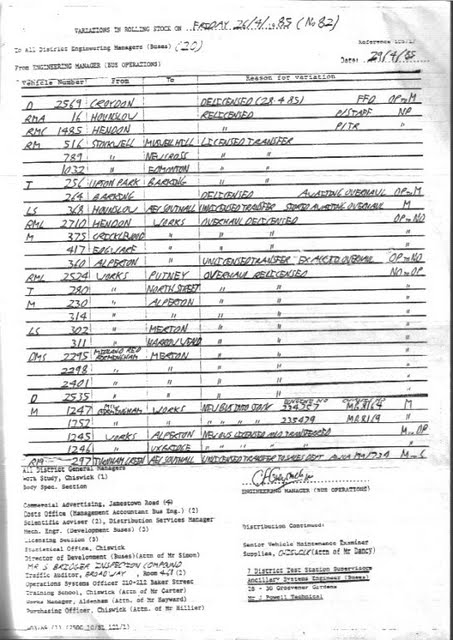 VARIATIONS IN ROLLING STOCK ON FRIDAY 26/4/1985 (No 82)
To All District Engineering Managers (Buses) (20)
Reference
From ENGINEERING MANAGER (BUS OPERATIONS)
Date: 29/4/85
Vehicle Number From To Reason for variation
D 2569 CROYDON DELICENSED (28.4.85) FFD OP to M
RMA 16 HOUNSLOW RELICENSED P/STAFF NP
RMC 1485 HENDON " P/TR "
RM 516 STOCKWELL MUSWELL HILL LICENSED TRANSFER
789 " NEW CROSS " "
1032 " EDMONTON " "
T 256 UPTON PARK BARKING " "
264 BARKING DELICENSED AWAITING OVERHAUL OP to M
LS 368 HOUNSLOW AEC SOUTHALL UNLICENSED TRANSFER STORED AWAITING OVERHAUL M
RML 2710 HENDON WORKS OVERHAUL DELICENSED OP to NO
M 375 CRICKLEWOOD " " "
417 EDGWARE " " "
360 ALPERTON " UNLICENSED TRANSFER EX ACCID OVERHAUL OP to NO
RML 2524 WORKS PUTNEY OVERHAUL RELICENSED NO to OP
T 280 " NORTH STREET " "
M 230 " ALPERTON " "
314 " " " "
LS 302 " MERTON " "
311 " HARROW WEALD " "
DMS 2295 MIDLAND RED BIRMINGHAM MERTON " "
2298 " " " "
2401 " " " "
D 2535 " " " "
M 1247 BIRMINGHAM WORKS NEW BUS INTO STOCK 234267 MR8164 M
1252 " " " " " 235479 "
1245 WORKS ALPERTON NEW BUS LICENSED AND TRANSFERRED M to OP
1246 " UXBRIDGE " " "
RM 297 TURNHAM GREEN AEC SOUTHALL UNLICENSED TRANSFER TO SALES DEPT M to S
All District General Managers
Work Study, Chiswick (1)
Body Spec. Section
ENGINEERING MANAGER (BUS OPERATIONS)
Commercial Advertising, Jamestown Road (4)
Costing Office (Management Accountant Bus Eng.) (2)
Scientific Adviser (2), Distribution Services Manager
Mech. Engr. (Development Buses) (2)
Licensing Section (3)
Statistical Office, Chiswick
Director of Development (Buses)(Attn of Mr Simon)
MR S BRIDGER INSPECTION COMPOUND
Traffic Auditor, BROADWAY, Room
Operations Systems Officer 210-212 Baker Street
Training School, Chiswick (Attn of Mr Carter)
Works Manager, Aldenham (Attn. of Mr Hayward)
Purchasing Officer, Chiswick (Attn. of Mr Hillier)
Distribution Continued:
Senior Vehicle Maintenance Examiner
Supplies, CHISWICK (Attn of Mr Dancy)
7 District Test Station Supervisors
Ancillary Systems Engineer (Buses)
28 - 30 Grosvenor Gardens
Mr J Powell Technical